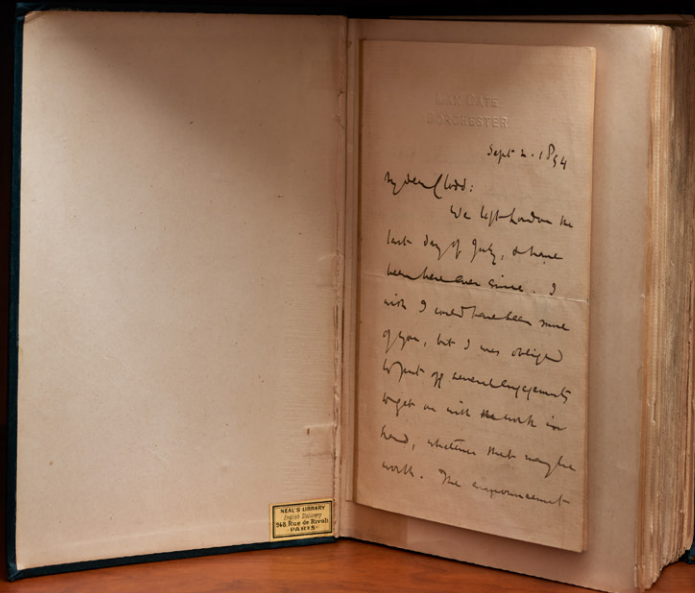 MAX GATE
DORCHESTER.
Sept 2. 1894
My dear Clodd:
We left London the
last day of July, & have
been here ever since. I
wish I could have seen more
of you, but I was obliged
to put off several engagements
to get on with the work in
hand, whatever that may be
worth. The announcement
NEAL'S LIBRARY
English Stationery
248, Rue de Rivoli
PARIS